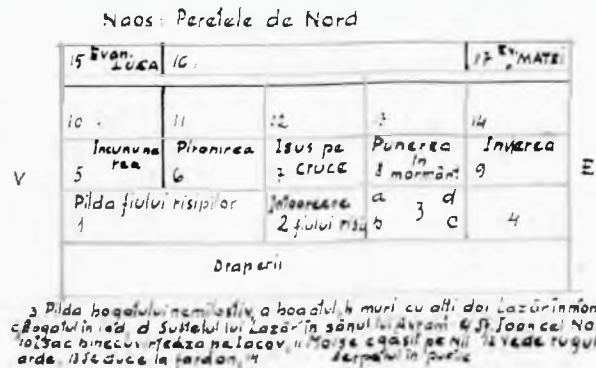 Naos: Peretele de Nord
15 Evan. LUCA 16. 17 Ev. MATEI
10. 11 12 13 14
Incununarea Pironirea Isus pe cruce Punerea în mormânt Invierea
V 5 6 7 8 9 E
Pilda fiului risipitor Intoarcere fiului risip a d
1 2 b 3 c 4
Draperii
3 Pilda bogatului nemilostiv, a bogatul, b muri cu alti doi Lazăr în
c Bogatul în iad, d Sufletul lui Lazăr în sânul lui Avram 4 Sf. Ioan cel No
10 Isac binecuvintează pe Iacov, 11 Moise e găsit pe Nil 12 Vede rugul
arde, 13 Se duce la faraon, 14 serpelui în